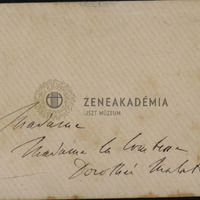 ZENEAKADÉMIA
LISZT MÚZEUM
Madame
Madame la Comtesse
Dorothée